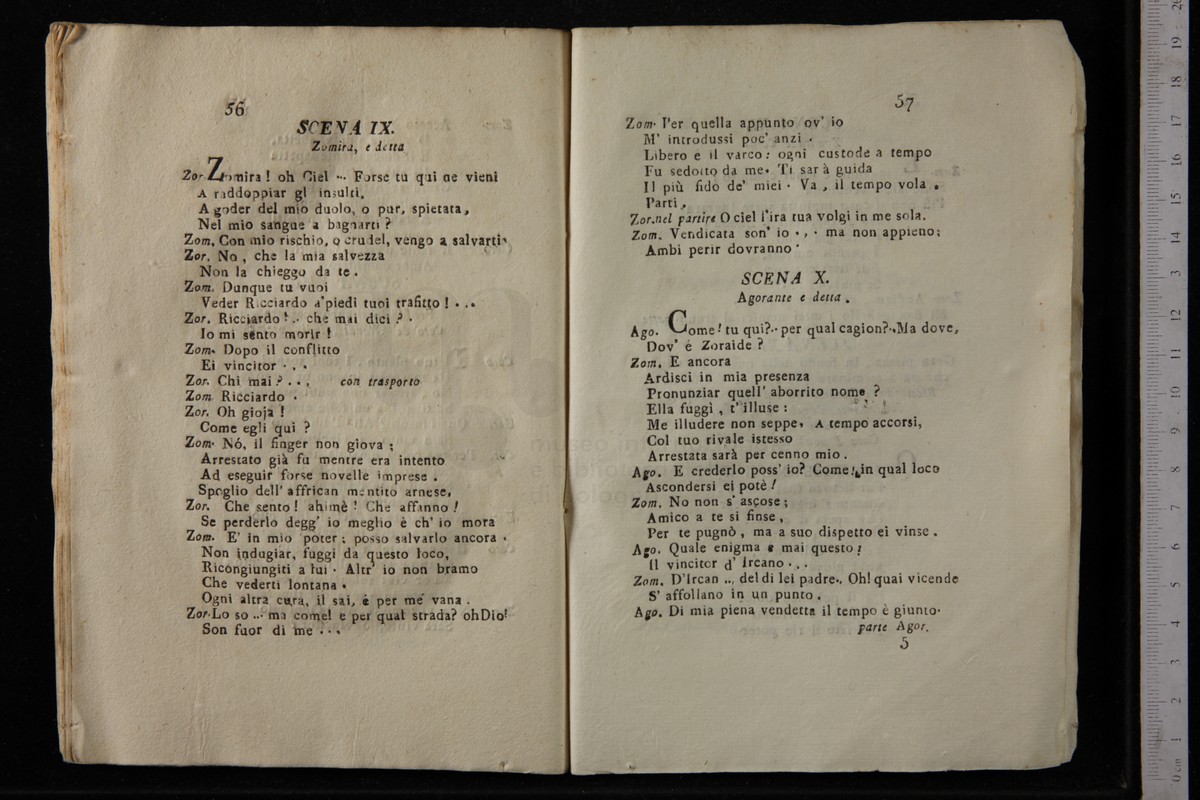 56
SCENA IX.
Zomira, e detta
Zor. Zomira! oh Ciel ... Forse tu qui ne vieni
A raddoppiar gl insulti,
A goder del mio duolo, o pur, spietata,
Nel mio sangue a bagnarti?
Zom. Con mio rischio, o crudel, vengo a salvarti.
Zor. No, che la mia salvezza
Non la chieggo da te.
Zom. Dunque tu vuoi
Veder Ricciardo a'piedi tuoi trafitto! ...
Zor. Ricciardo! .. che mai dici? .
Io mi sento morir!
Zom. Dopo il conflitto
Ei vincitor ...
Zor. Chi mai? ... con trasporto
Zom. Ricciardo .
Zor. Oh gioja!
Come egli quì ?
Zom. Nó, il finger non giova;
Arrestato già fu mentre era intento
Ad eseguir forse novelle imprese.
Spoglio dell' affrican mentito arnese,
Zor. Che sento! ahimè! Che affanno!
Se perderlo degg' io meglio è ch' io mora
Zom. E' in mio poter; posso salvarlo ancora.
Non indugiar, fuggi da questo loco,
Ricongiungiti a lui. Altr' io non bramo
Che vederti lontana.
Ogni altra cura, il sai, é per me vana.
Zor. Lo so ... ma come! e per qual strada? oh Dio!
Son fuor di me ...
57
Zom. Per quella appunto ov' io
M' introdussi poc' anzi .
Libero e il varco: ogni custode a tempo
Fu sedotto da me. Ti sarà guida
Il più fido de' miei. Va, il tempo vola.
Parti,
Zor. nel partire O ciel l'ira tua volgi in me sola.
Zom. Vendicata son' io ... ma non appieno;
Ambi perir dovranno.
SCENA X.
Agorante e detta.
Ago. Come! tu qui?.. per qual cagion?..Ma dove,
Dov' é Zoraide ?
Zom. E ancora
Ardisci in mia presenza
Pronunziar quell' aborrito nome ?
Ella fuggì, t' illuse:
Me illudere non seppe, A tempo accorsi,
Col tuo rivale istesso
Arrestata sarà per cenno mio.
Ago. E crederlo poss' io? Come! in qual loco
Ascondersi ei potè!
Zom. No non s' ascose;
Amico a te si finse,
Per te pugnò, ma a suo dispetto ei vinse.
Ago. Quale enigma e mai questo!
Il vincitor d' Ircano ...
Zom. D'Ircan .., del di lei padre.. Oh! quai vicende
S' affollano in un punto.
Ago. Di mia piena vendetta il tempo è giunto.
parte Agor.
5